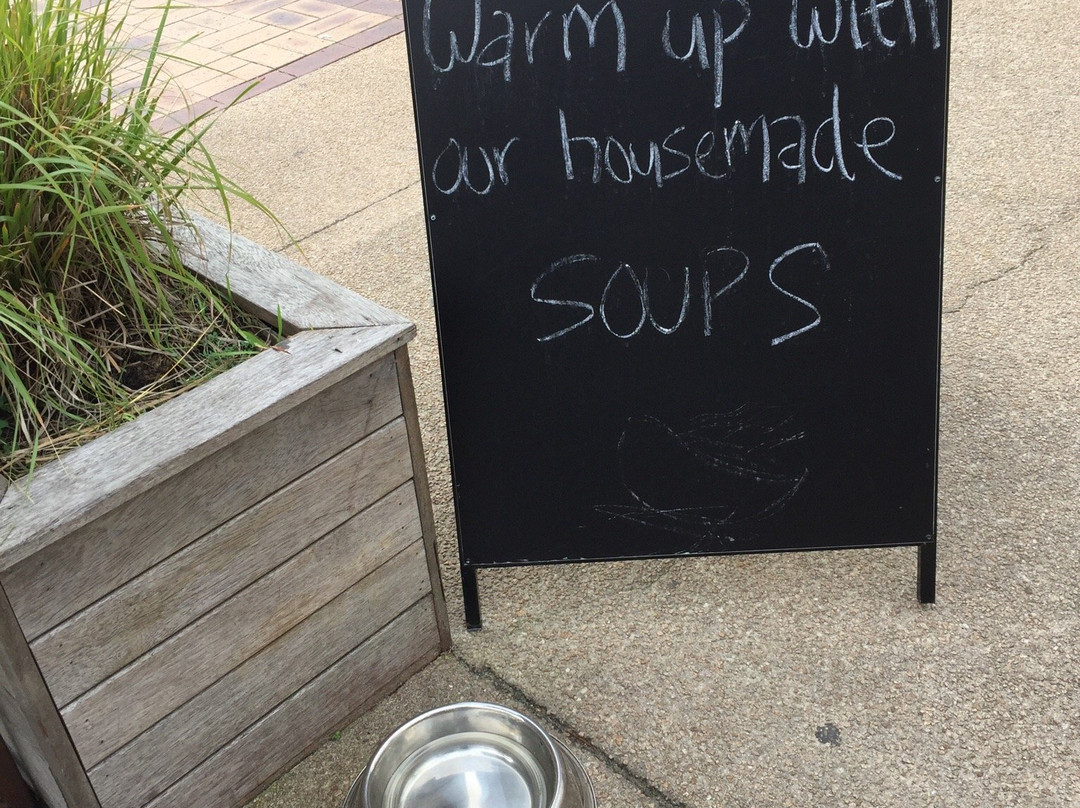 Warm up with
our housemade
SOUPS